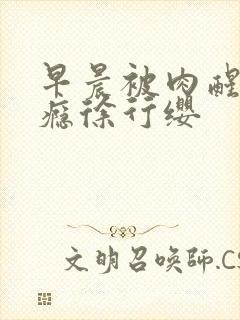 早晨被肉醒
瘾徐行缨
文明召唤师.CS